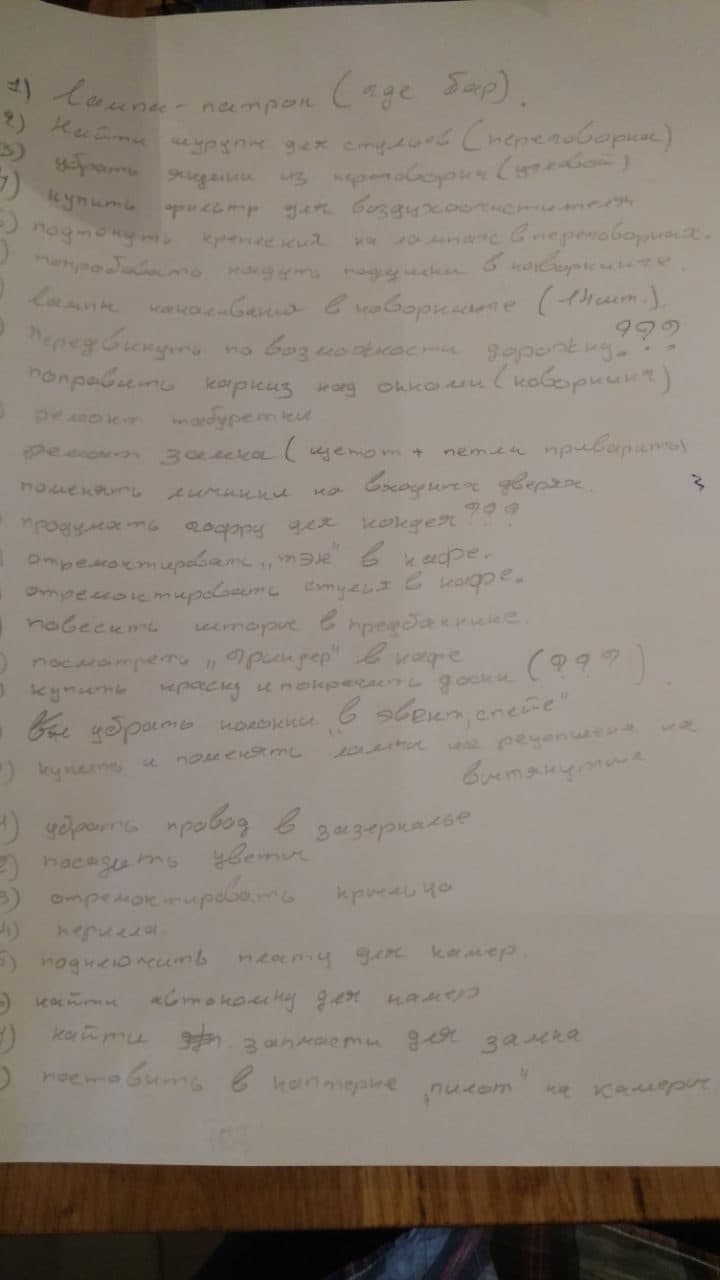 1) Лампы - патрон (где бар).
2) Найти шурупы для стульев (переговорка)
3) убрать из переговорки
4) купить фильтр для воздухоочистителя
5) подтянуть крепления на лампах в переговорных.
) попробовать надуть подушки в коворкинге.
Лампы накаливания в коворкинге (14 шт.).
передвинуть по возможности дорожку.???
поправить карниз над окнами (коворкинг)
ремонт табуретки
ремонт замка ( + петли приварить)
поменять личинки на входных дверях. 3
продумать гофру для кондея???
отремонтировать "тэн" в кафе.
отремонтировать стулья в кафе.
повесить шторы в предбаннике.
) посмотреть "гриндер" в кафе
) купить краску и покрасить доски (???).
убрать колонки в "эвент спейс"
) купить и поменять лампы на ресепшене на
вытянутые
1) убрать провод в зазеркалье
2) посадить цветы
3) отремонтировать крыльцо
4) перилла.
5) подключить плату для камер.
6) найти автономку для камер
7) найти запчасти для замка
) поставить в каптерке "пилот" на камеры